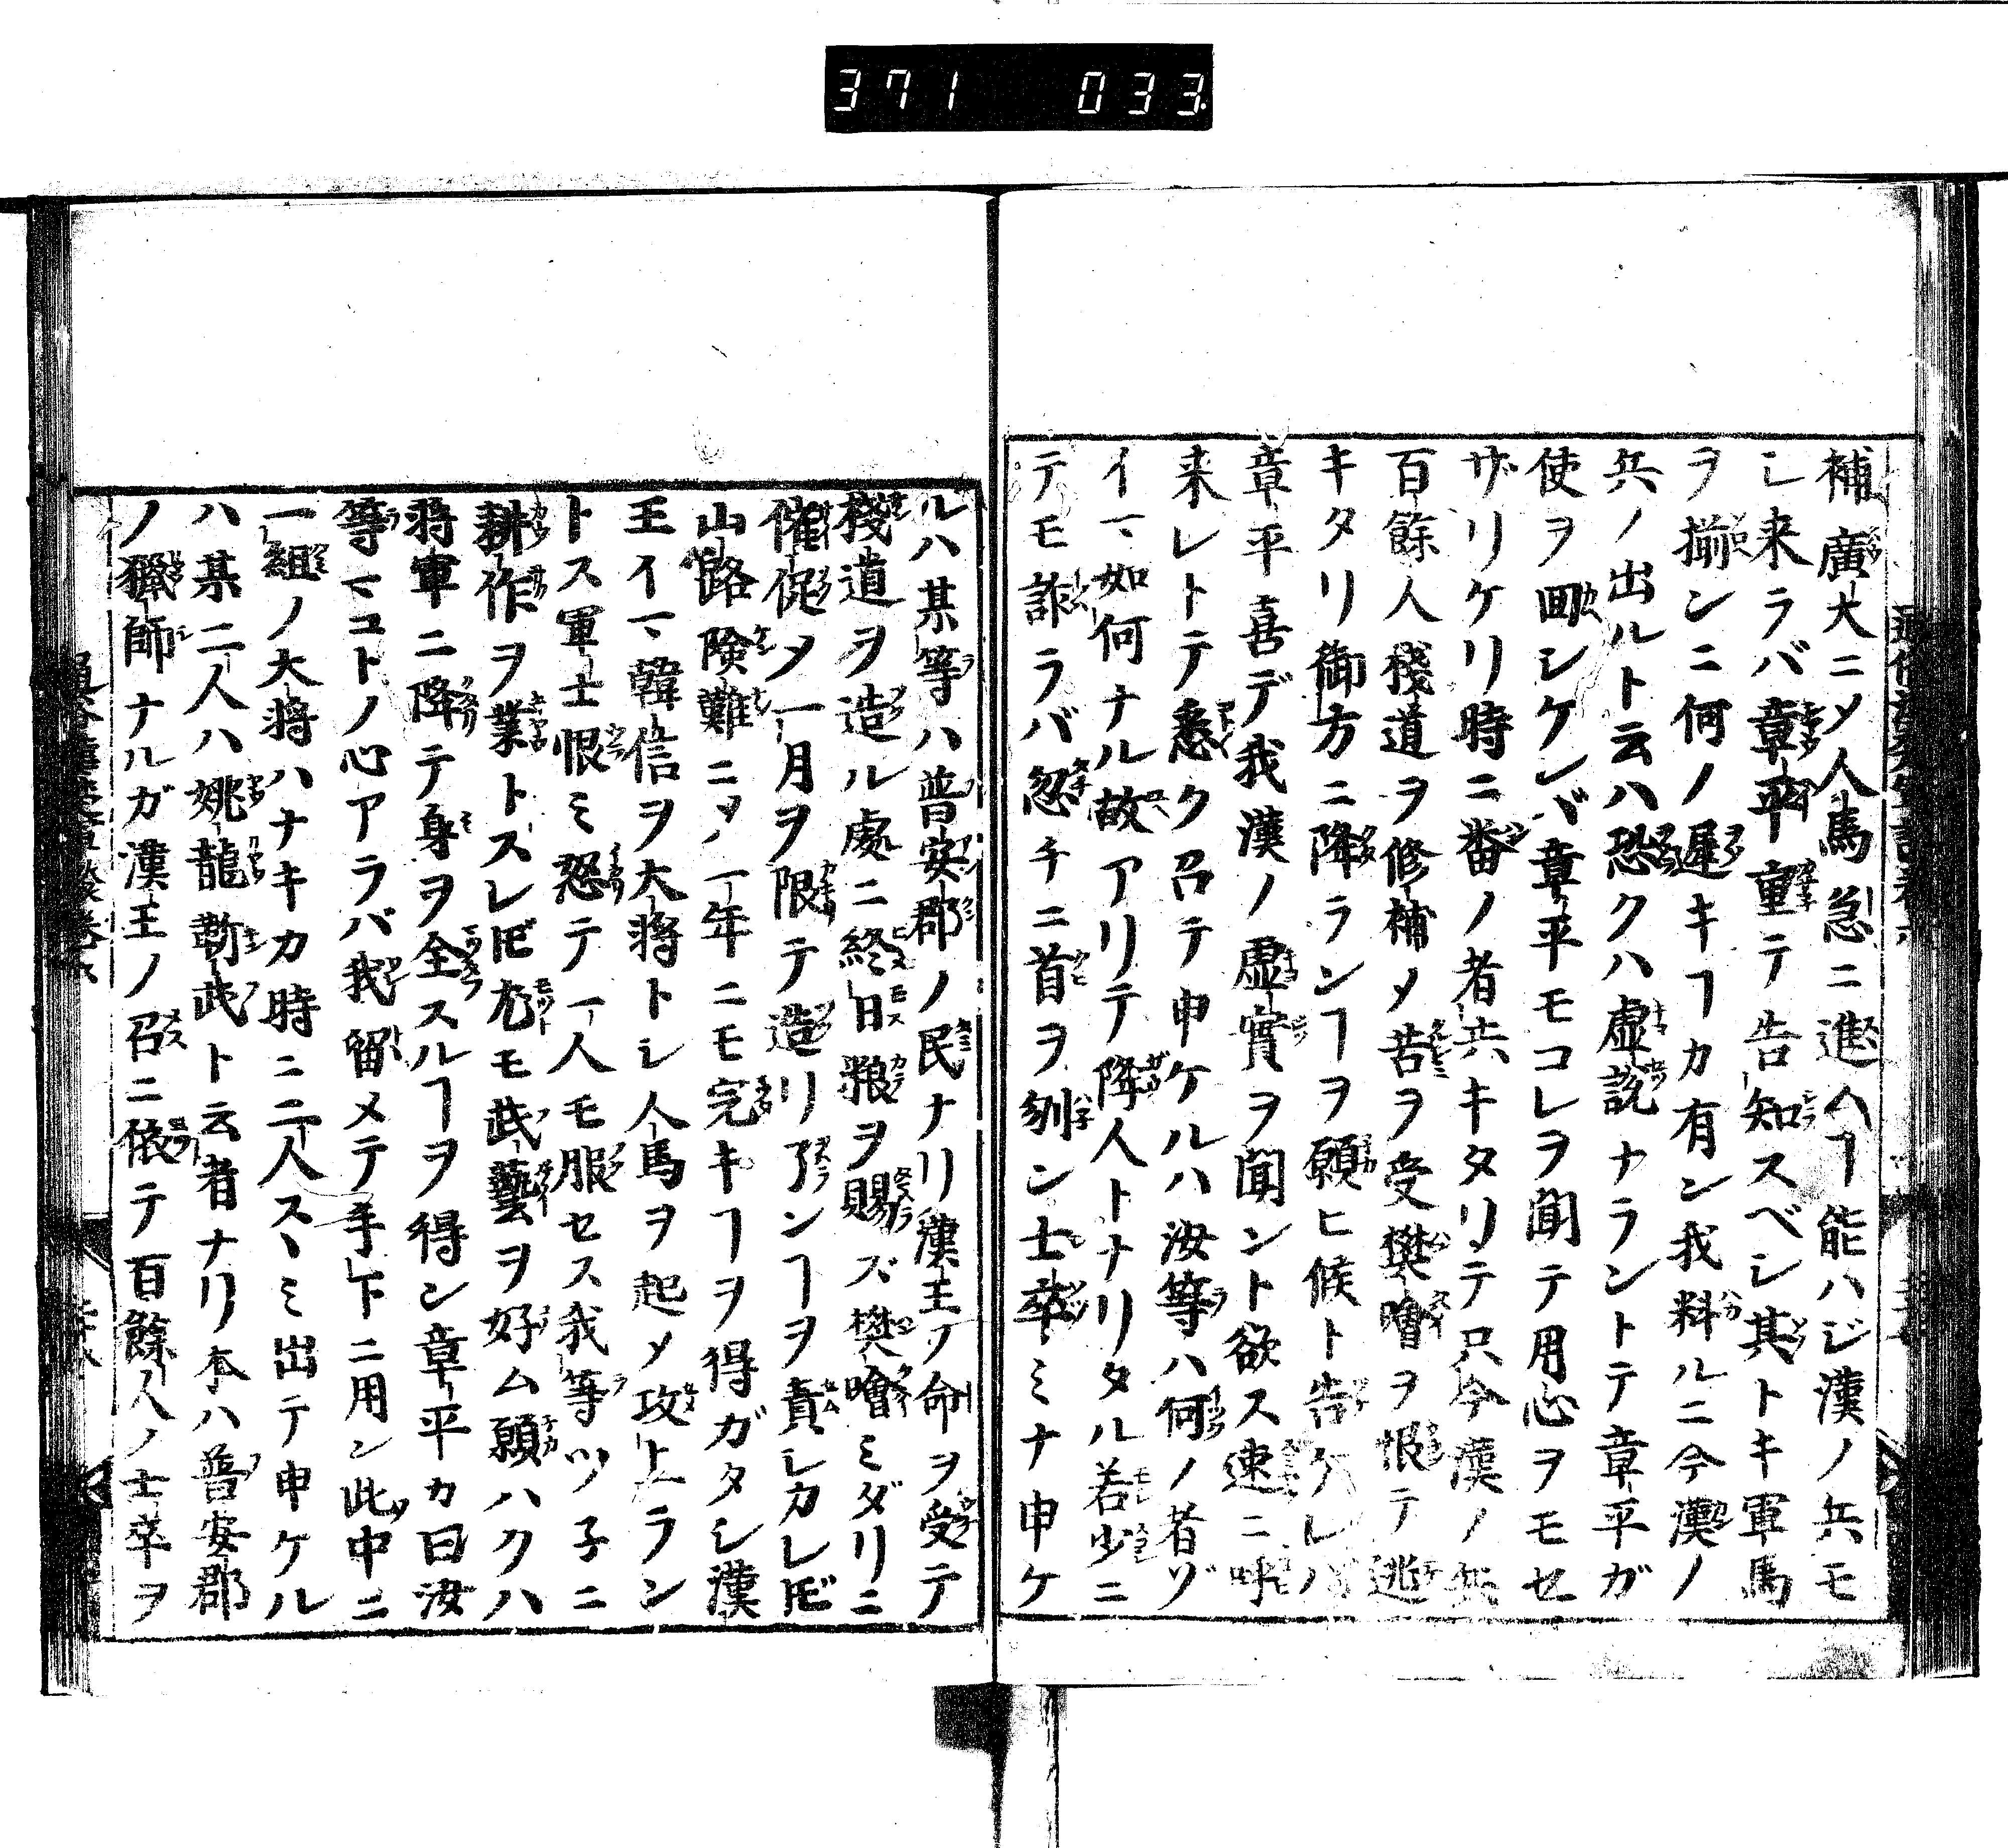 371 033
補廣大ニメ人馬急ニ進ヘヿ能ハジ漢ノ兵モ
シ来ラバ章平重テ告知スベシ其トキ軍馬
ヲ揃ンニ何ノ遅キヿカ有ン我料ルニ今漢ノ
兵ノ出ルト云ハ恐クハ虚説ナラントテ章平ガ
使ヲ囬シケンバ章平モコレヲ聞テ用心ヲモセ
ザリケリ時ニ番ノ者共キタリテ只今漢ノ兵
百餘人棧道ヲ修補メ苦ヲ受樊噲ヲ恨テ逃
キタリ御方ニ降ランヿヲ願ヒ候ト告ケレバ
章平喜デ我漢ノ虚實ヲ聞ント欲ス速ニ呼
来レトテ悉ク召テ申ケルハ汝等ハ何ノ者ゾ
イマ如何ナル故アリテ降人トナリタル若少ニ
テモ詐ラバ忽チニ首ヲ刎ン士卒ミナ申ケ
ルハ某等ハ普安郡ノ民ナリ漢王ノ命ヲ受テ
棧道ヲ造ル處ニ終日粮ヲ賜ズ樊噲ミダリニ
催促メ一月ヲ限テ造リ了ンヿヲ責シカレ𪜈
山路険難ニメ一年ニモ完キヿヲ得ガタシ漢
王イマ韓信ヲ大将トシ人馬ヲ起メ攻上ラン
トス軍士恨ミ怒テ一人モ服セス我等ツ子ニ
耕作ヲ業トスレ𪜈尤モ武藝ヲ好ム願ハクハ
将軍ニ降テ身ヲ全スルヿヲ得ン章平カ曰汝
等マコトノ心アラバ我留メテ手下ニ用ン此中ニ
一組ノ大将ハナキカ時ニ二人スヽミ出テ申ケル
ハ某二人ハ姚龍靳武ト云者ナリ本ハ普安郡
ノ獵師ナルガ漢王ノ召ニ依テ百餘人ノ士卒ヲ